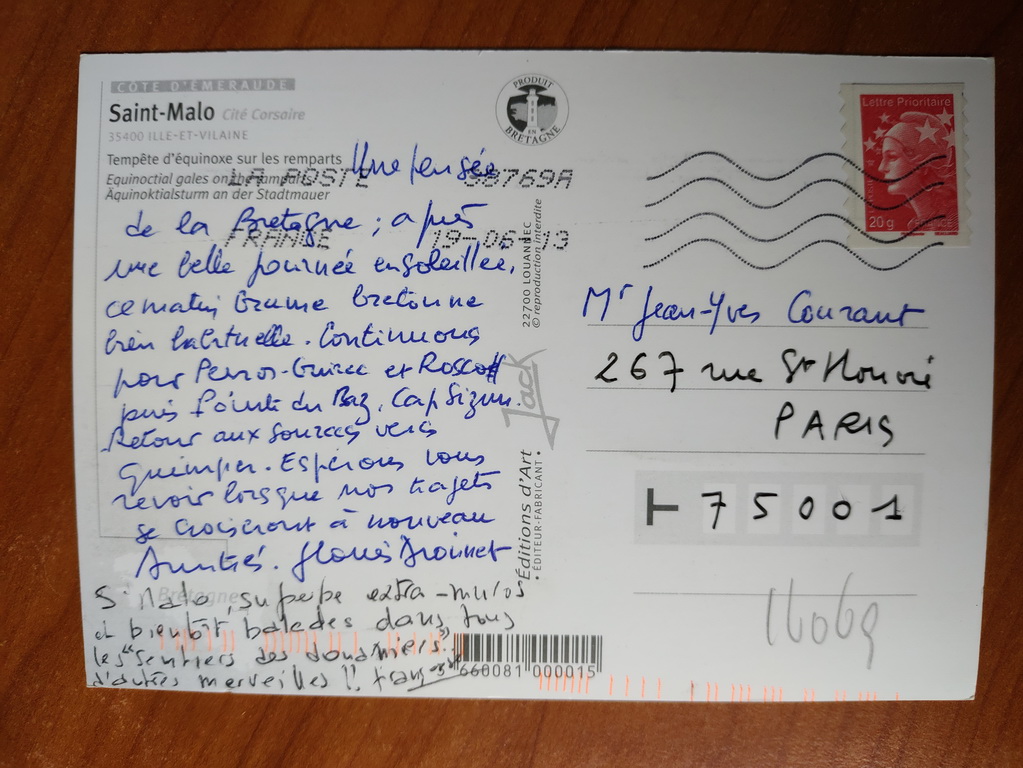 CÔTE D'ÉMERAUDE
Saint-Malo Cité Corsaire
35400 ILLE-ET-VILAINE
Tempête d'équinoxe sur les remparts
Equinoctial gales on the ramparts
Äquinoktialsturm an der Stadtmauer
LA POSTE 68769A
FRANCE 19-06-13
Une pensée
de la Bretagne ; après
une belle journée ensoleillée,
ce matin brume bretonne
bien habituelle. Continuons
pour Perros-Guirec et Roscoff
puis Pointe du Raz, Cap Sizun.
Retour aux sources vers
Quimper. Espérons vous
revoir lorsque nos trajets
se croiseront à nouveau
Amitiés.
St Malo, superbe extra-muros
et bientôt balades dans tous
les "sentiers des douaniers"
d'autres merveilles !!
Bretagne
PRODUIT
EN
BRETAGNE
22700 LOUANNEC
© reproduction interdite
Jack
Éditions d'Art
• ÉDITEUR-FABRICANT •
660081 000015
Lettre Prioritaire
20 g
Mr Jean-Yves Courant
267 rue St Honoré
PARIS
75001